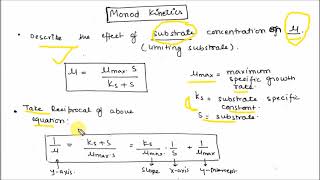 Monod Kinetics
• Describe the effect of substrate concentration on μ.
(limiting substrate).
μ = μmax. S / Ks + S
μmax = maximum
specific growth
rate.
Ks = substrate specific
constant.
S = substrate.
• Take Reciprocal of above
equation.
1/μ = Ks + S / μmax. S = Ks/μmax. 1/S + 1/μmax
y-axis slope x-axis y-intercept